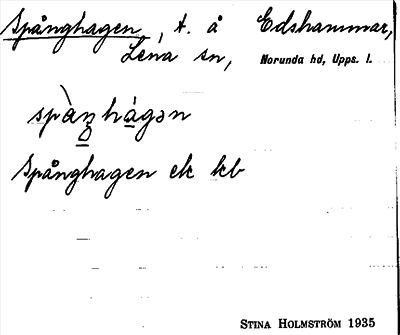 Spånghagen, t. å Edshammar,
Lena sn, Norunda hd, Upps. l.
Spånghagen ek kb
STINA HOLMSTRÖM 1935